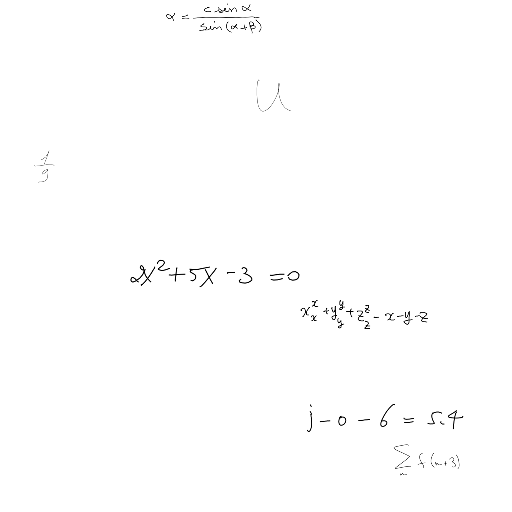 α = \frac{c sin α}{sin(α+β)}
u
\frac{1}{9}
2x^2 + 5x - 3 = 0
x_x^x + y_y^y + z_z^z - x - y - z
j - 0 - 6 = 5.4
\sum_n f(n+3)